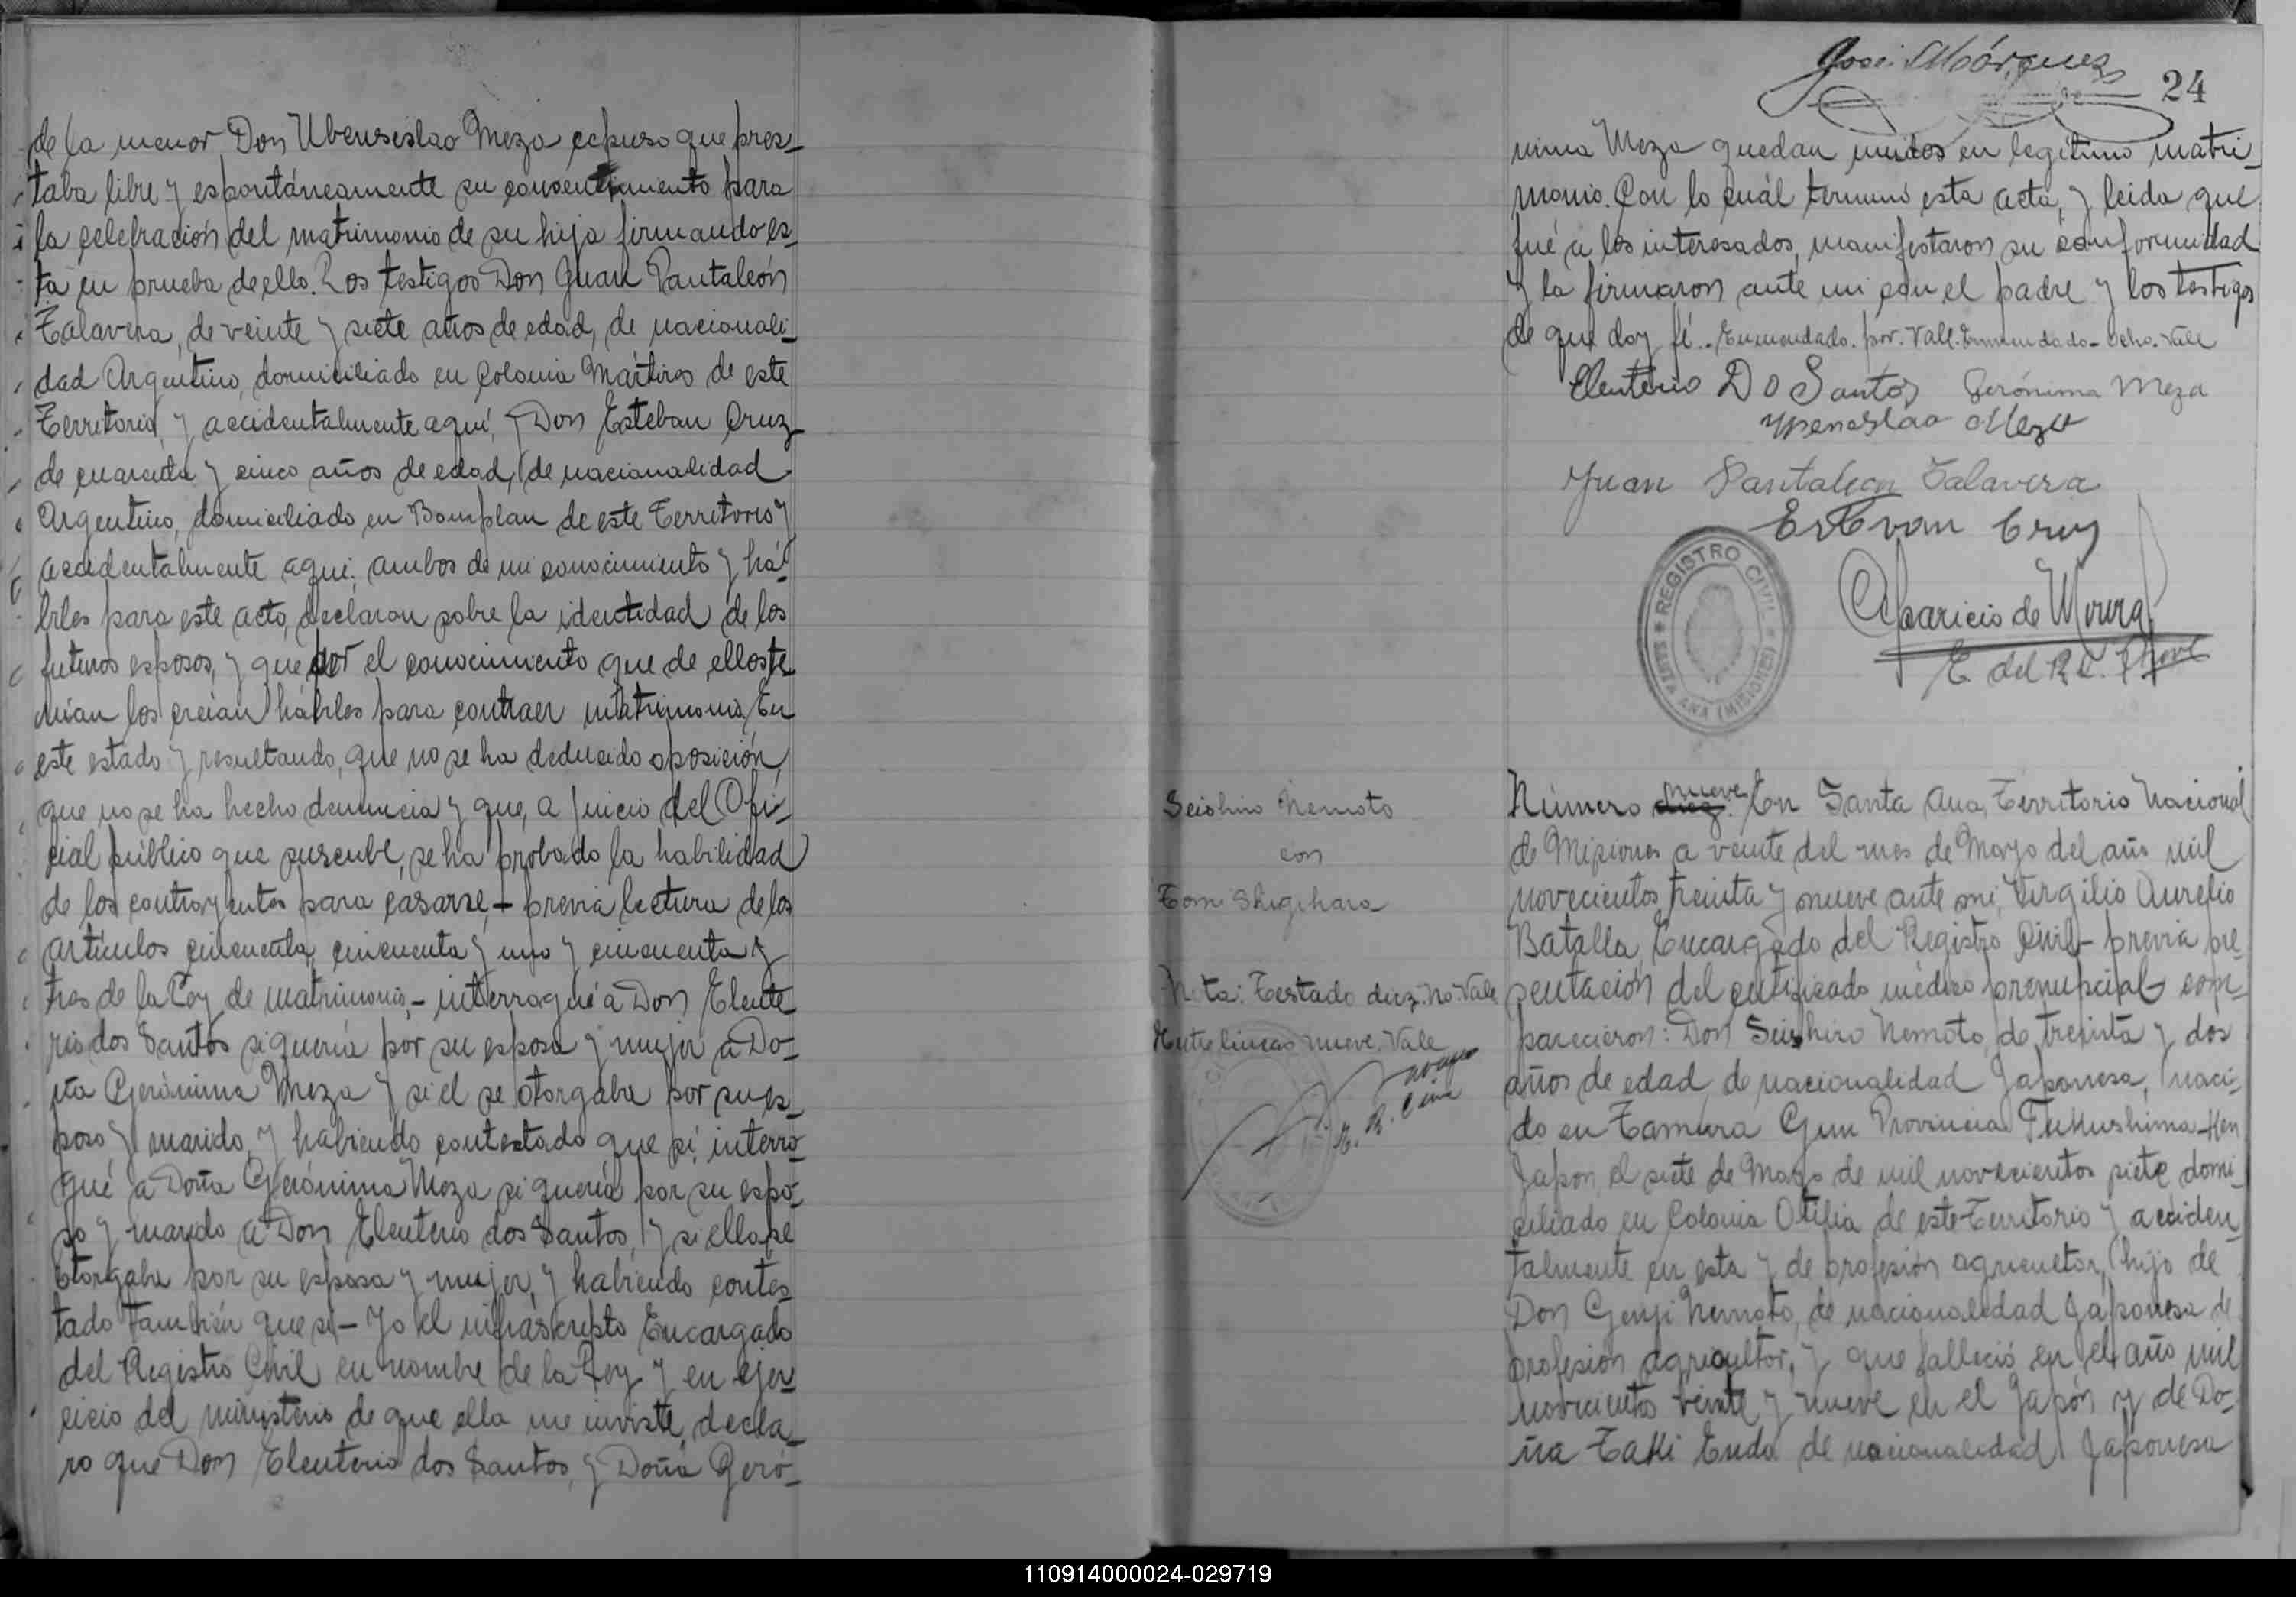 de la menor Don Ubenseslao Meza expuso que pres-
taba libre y espontáneamente su consentimiento para
la celebración del matrimonio de su hija firmando es-
ta en prueba de ello. Los testigos Don Juan Pantaleón
Talavera, de veinte y siete años de edad, de nacionali-
dad Argentino, domiciliado en Colonia Mártires de este
Territorio, y accidentalmente aquí, y Don Esteban Cruz
de cuarenta y cinco años de edad, de nacionalidad
Argentino, domiciliado en Bomplan de este Territorio y
accidentalmente aquí, ambos de mi conocimiento y há-
biles para este acto, declaran sobre la identidad de los
futuros esposos, y que por el conocimiento que de ellos te-
nían los creían hábiles para contraer matrimonio. En
este estado y resultando, que no se ha deducido oposición,
que no se ha hecho denuncia y que, a juicio del Ofi-
cial público que suscribe, se ha probado la habilidad
de los contrayentes para casarse,- previa lectura de los
artículos cincuenta, cincuenta y uno y cincuenta y
tres de la Ley de matrimonio,- interrogué a Don Eleute
rio dos Santos si quería por su esposa y mujer a Do-
ña Gerónima Meza y si el se otorgaba por su es-
poso y marido, y habiendo contestado que sí, interro-
gué a Doña Gerónima Meza si quería por su espo-
so y marido a Don Eleuterio dos Santos, y si ella se
otorgaba por su esposa y mujer, y habiendo contes-
tado también que sí- Yo el infrascripto Encargado
del Registro Civil en nombre de la Ley y en ejer-
cicio del ministerio de que ella me inviste, decla-
ro que Don Eleuterio dos Santos, y Doña Geró-
José Márquez
24
nima Meza quedan unidos en legítimo matri-
monio. Con lo cuál terminó esta acta, y leida que
fué a los interesados, manifestaron su conformidad
y la firmaron ante mi con el padre y los testigos
de que doy fé.. Enmendado. por. Vale. Enmendado- ocho. Vale
Eleuterio Do Santos Gerónima Meza
Wenceslao Meza
Juan Pantaleon Talavera
Estevan Cruz
REGISTRO CIVIL
SANTA ANA (MISIONES)
Aparicio de Moura
E. del R. C.
Seishiro Nemoto
con
Tomi Shigihara
Nota: Testado diez. No. Vale
Entre lineas nueve. Vale
Número diez nueve. En Santa Ana, Territorio Nacional
de Misiones a veinte del mes de Mayo del año mil
novecientos treinta y nueve ante mi, Virgilio Aurelio
Batalla, Encargado del Registro Civil- previa pre-
sentación del certificado médico prenupcial- com-
parecieron: Don Seishiro Nemoto, de treinta y dos
años de edad, de nacionalidad Japonesa, naci-
do en Tamura Gun Provincia Fukushima-Ken
Japon, el siete de Mayo de mil novecientos siete, domi-
ciliado en Colonia Otilia de este Territorio y acciden-
talmente en esta y de profesión agricultor, hijo de
Don Genji Nemoto, de nacionalidad Japonesa de
profesión agricultor, y que falleció en el año mil
novecientos veinte y nueve en el Japón y de Do-
ña Taki Endo de nacionalidad Japonesa
110914000024-029719